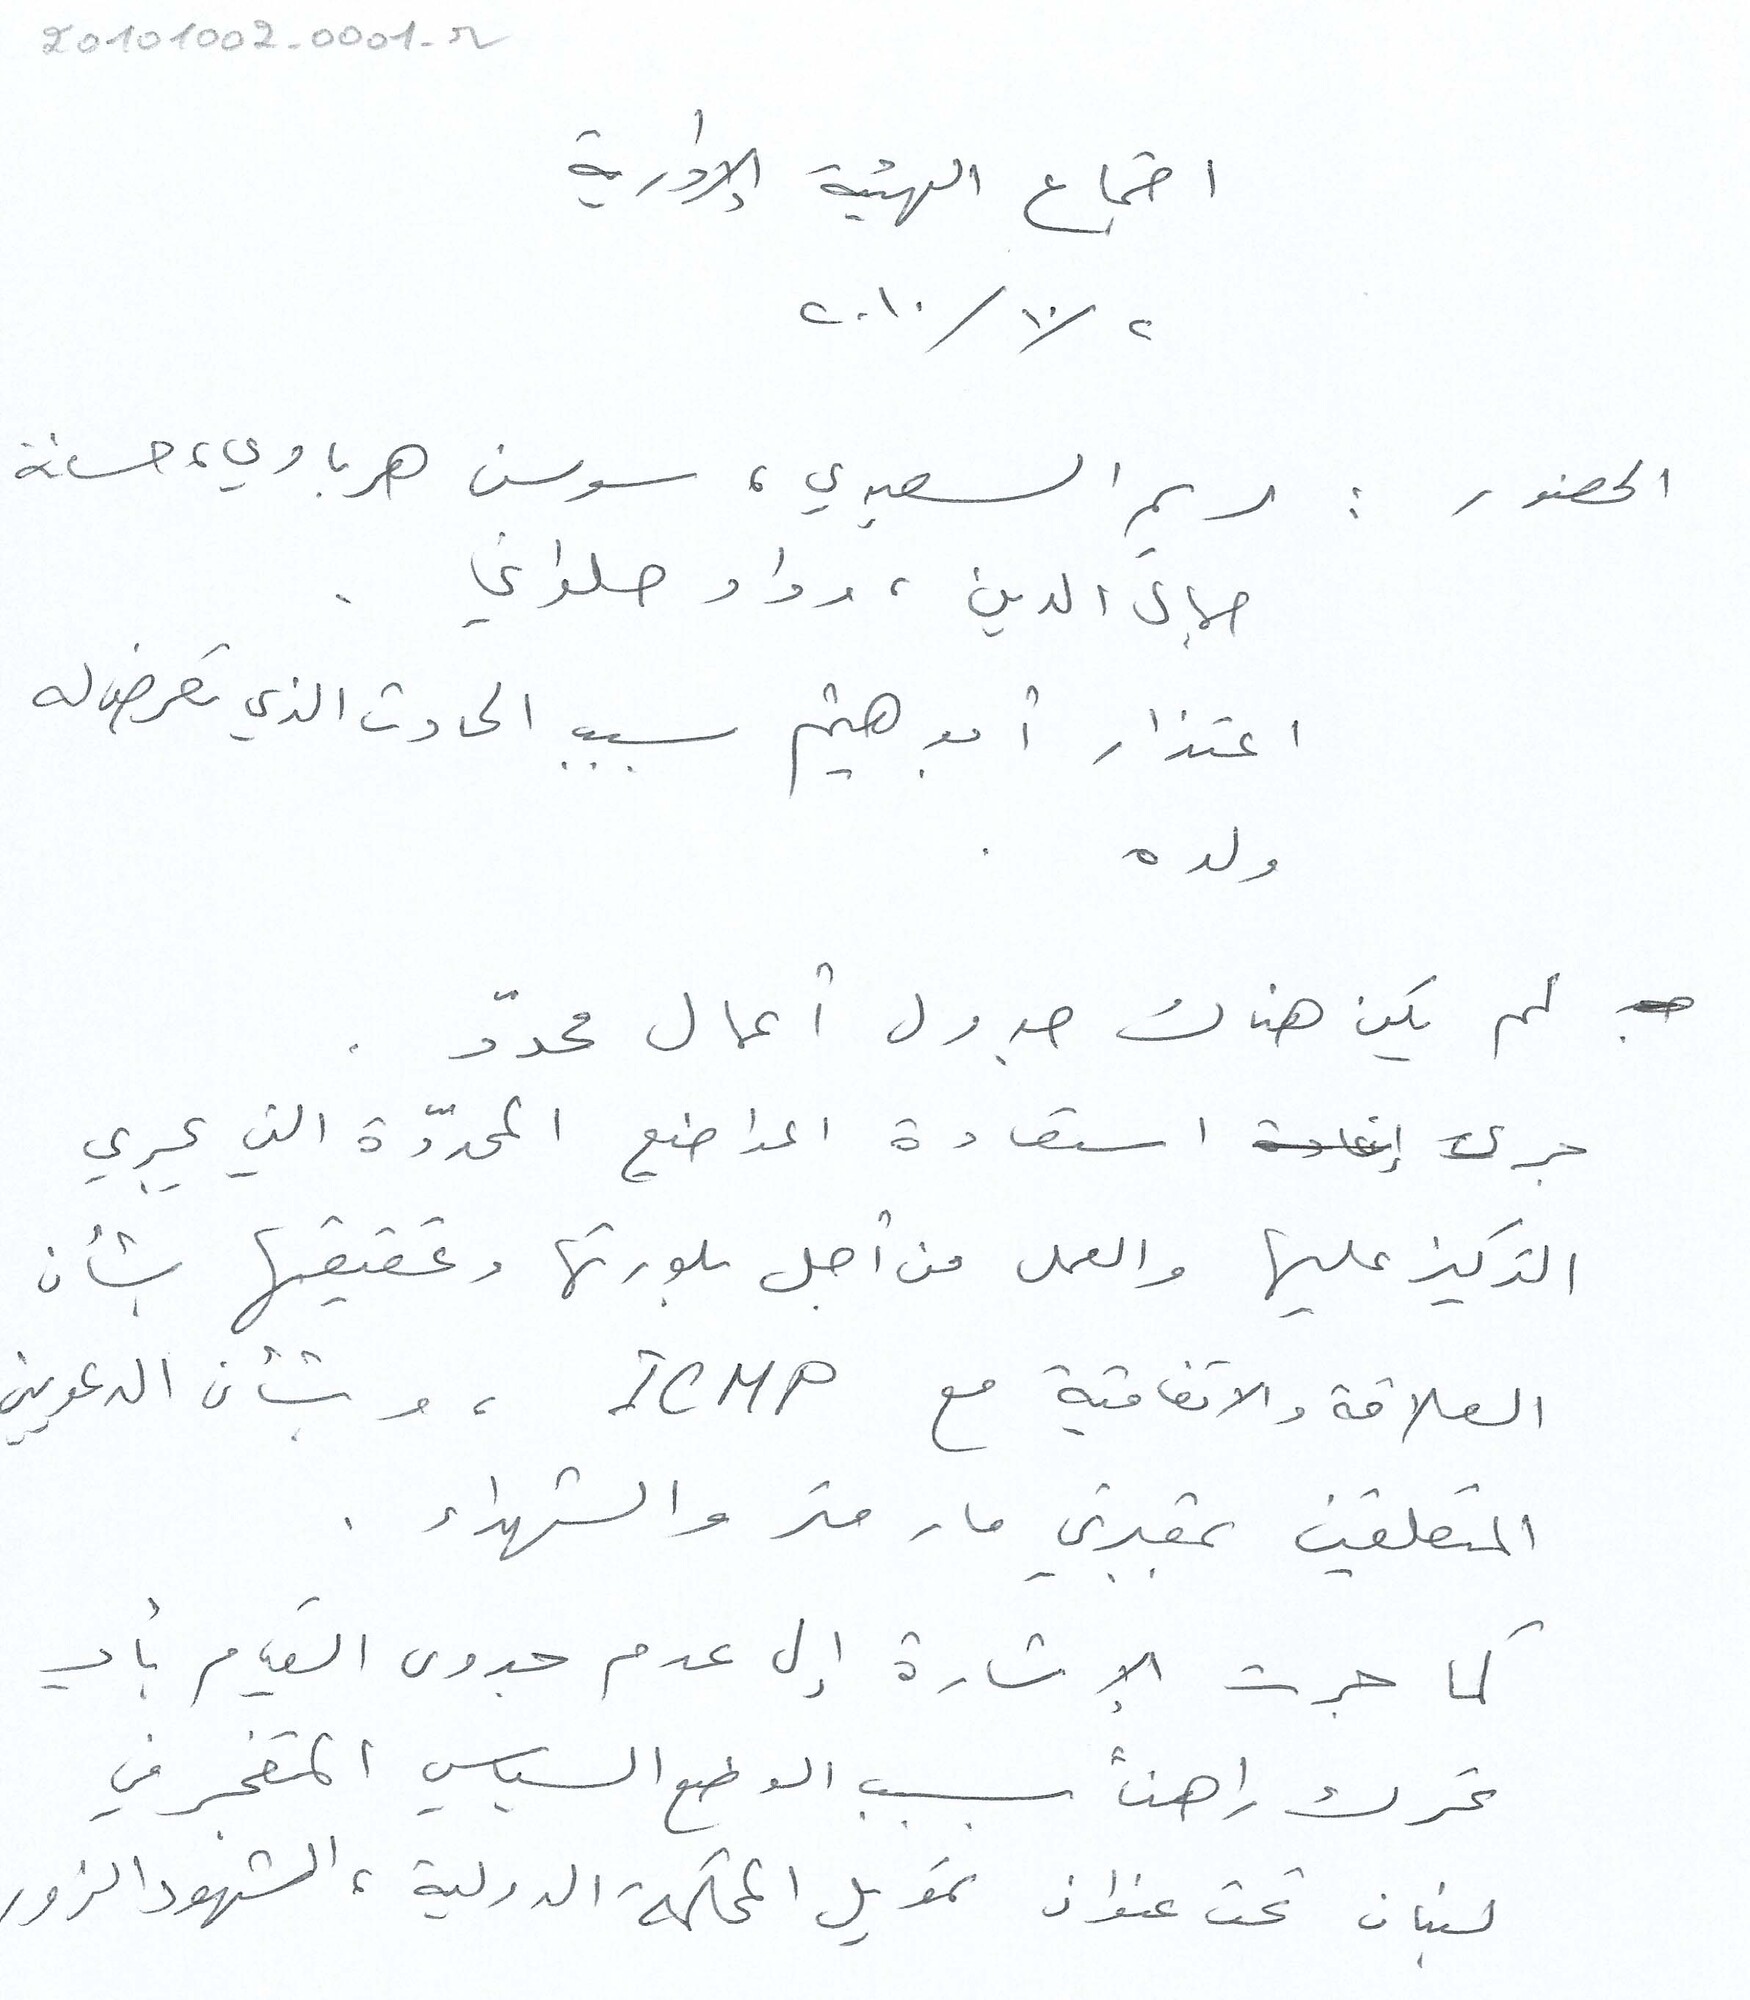 20101002-0001-r
اجتماع الهيئة الإدارية
٢ /١٠/ ٢٠١٠
الحضور : ريم السعيدي ، سوسن هرباوي ، حسنة
جمال الدين ، وداد حلواني .
اعتذار أبو هيثم بسبب الحادث الذي تعرض له
ولده .
لم يكن هناك جدول أعمال محدّد .
جرى إعادة استعادة المواضيع المحدّدة التي يجري
التركيز عليها والعمل من أجل بلورتها وتحقيقها بشأن
العلاقة والاتفاقية مع ICMP ، و بشأن الدعويين
المتعلقتين بمقبرتي مار متر والشهداء .
كما جرت الإشارة إلى عدم جدوى القيام بأي
تحرك راهناً بسبب الوضع السياسي المتفجر في
لبنان تحت عنوان تمويل المحكمة الدولية ، الشهود الزور